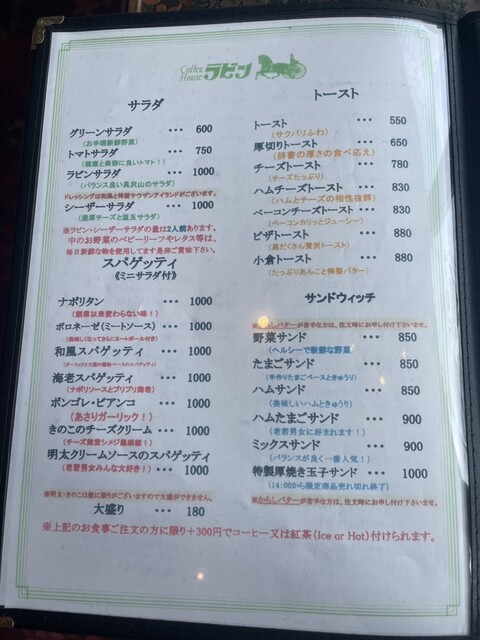 Coffee House ラビン
サラダ
グリーンサラダ ・・・ 600
(お手頃新鮮野菜)
トマトサラダ ・・・ 750
(健康と美容に良いトマト!)
ラビンサラダ ・・・ 1000
(バランス良い具沢山のサラダ)
ドレッシングは和風と特製サウザンアイランドがございます。
シーザーサラダ ・・・ 1000
(濃厚チーズと温玉サラダ)
※ラビン・シーザーサラダの量は2人前あります。
中のお野菜のベビーリーフやレタス等は、
毎日新鮮な物を使用してます是非ご賞味下さい。
スパゲッティ
《ミニサラダ付》
ナポリタン ・・・ 1000
(創業以来変わらない味!)
ボロネーゼ(ミートソース) ・・・ 1000
(美味しくなってさらにミートボール付き)
和風スパゲッティ ・・・ 1000
海老スパゲッティ ・・・ 1000
(ナポリソースとプリプリ海老)
ボンゴレ・ビアンコ ・・・ 1000
(あさりガーリック!)
きのこのチーズクリーム ・・・ 1000
明太クリームソースのスパゲッティ
(老若男女みんな大好き!) ・・・ 1000
※明太・きのこは数に限りがございますので大盛ができません。
大盛り ・・・ 180
トースト
トースト ・・・ 550
(サクパリふわ)
厚切りトースト ・・・ 650
(辞書の厚さの食べ応え)
チーズトースト ・・・ 780
(チーズたっぷり)
ハムチーズトースト ・・・ 830
(ハムとチーズの相性抜群)
ベーコンチーズトースト ・・・ 830
(ベーコンカリッとジューシー)
ピザトースト ・・・ 880
(具だくさん贅沢トースト)
小倉トースト ・・・ 880
(たっぷりあんこと特製バター)
サンドウィッチ
※からしバターが苦手な方は、注文時にお申し付け下さいませ。
野菜サンド ・・・ 850
(ヘルシーで新鮮な野菜
たまごサンド ・・・ 850
(手作りたまごペーストときゅうり)
ハムサンド ・・・ 850
(美味しいハムときゅうり)
ハムたまごサンド ・・・ 900
(老若男女に好まれます!)
ミックスサンド ・・・ 900
(バランスが良く一番人気!)
特製厚焼き玉子サンド ・・・ 1000
(14:00から限定商品売り切れ終了)
※からしバターが苦手な方は、注文時にお申し付け下さいませ。
※上記のお食事ご注文の方に限り+300円でコーヒー又は紅茶(Ice or Hot)付けられます。